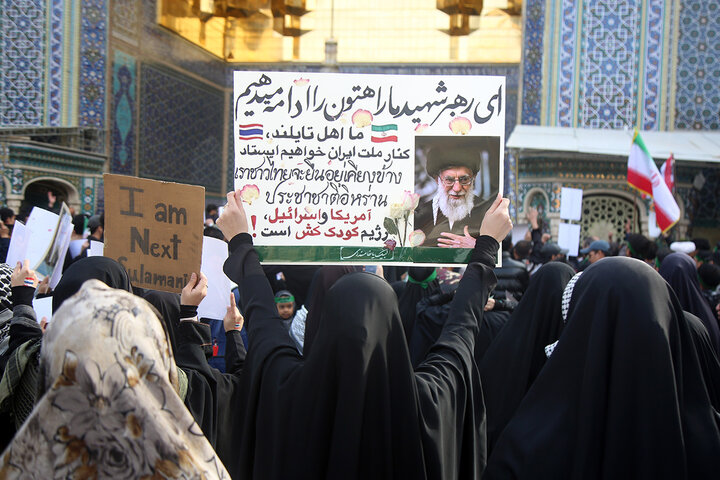 ای رهبر شهید ما راهتون را ادامه میدهیم
ما اهل تایلند،
کنار ملت ایران خواهیم ایستاد
ราชาวไทยจะยืนอยู่เคียงข้าง
ประชาชาติอิหร่าน
آمریکا و اسرائیل،
رژیم کودک کش است !
I am
Next
Sulamani